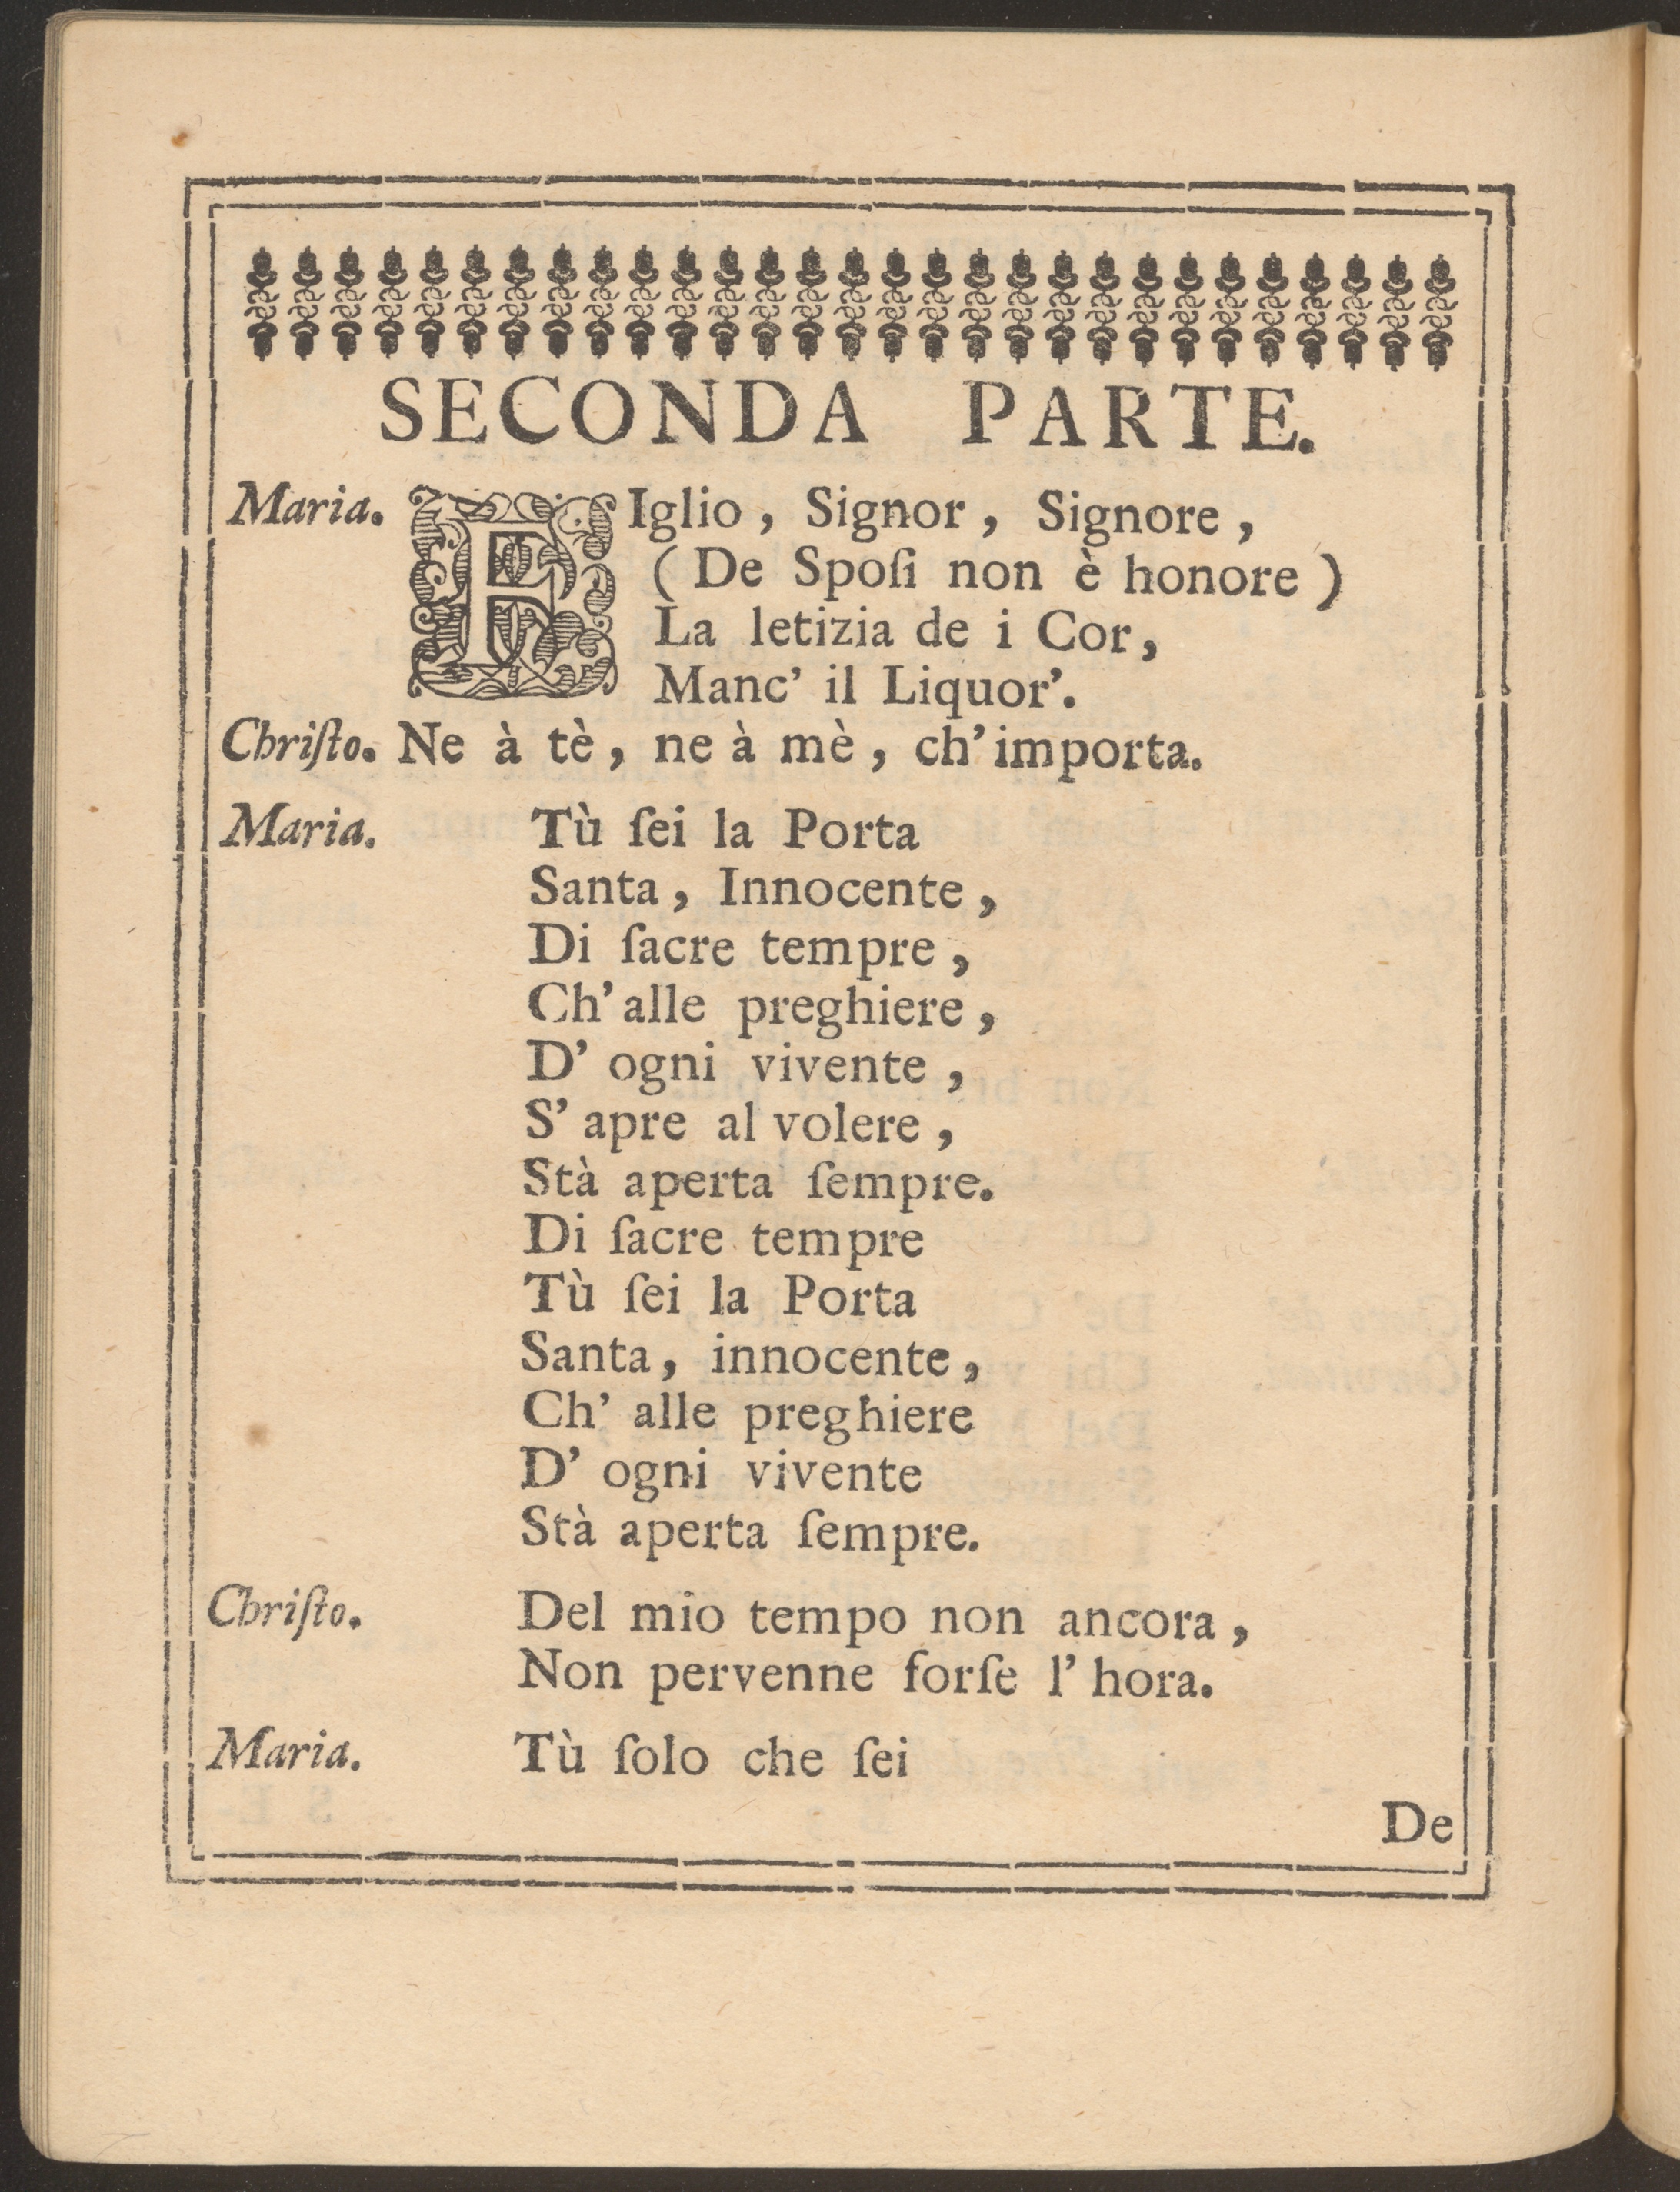 SECONDA PARTE.
Maria. FIglio, Signor, Signore,
(De Spoſi non è honore)
La letizia de i Cor,
Manc' il Liquor'.
Chriſto. Ne à tè, ne à mè, ch' importa.
Maria. Tù ſei la Porta
Santa, Innocente,
Di ſacre tempre,
Ch' alle preghiere,
D' ogni vivente,
S' apre al volere,
Stà aperta ſempre.
Di ſacre tempre
Tù ſei la Porta
Santa, innocente,
Ch' alle preghiere
D' ogni vivente
Stà aperta ſempre.
Chriſto. Del mio tempo non ancora,
Non pervenne forſe l' hora.
Maria. Tù ſolo che ſei
De